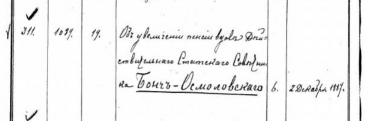 311. 1039. 19. Объ увеличеніи пенсіи вдовѣ Дѣй-
ствительнаго Статскаго Совѣтни-
ка Бончъ-Осмоловскаго 6. 2 Декабря 1887.